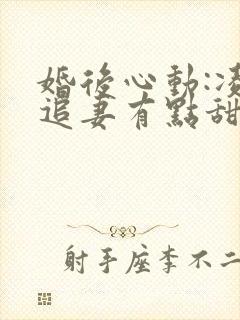 婚後心動:凌
追妻有點甜
射手座李不二